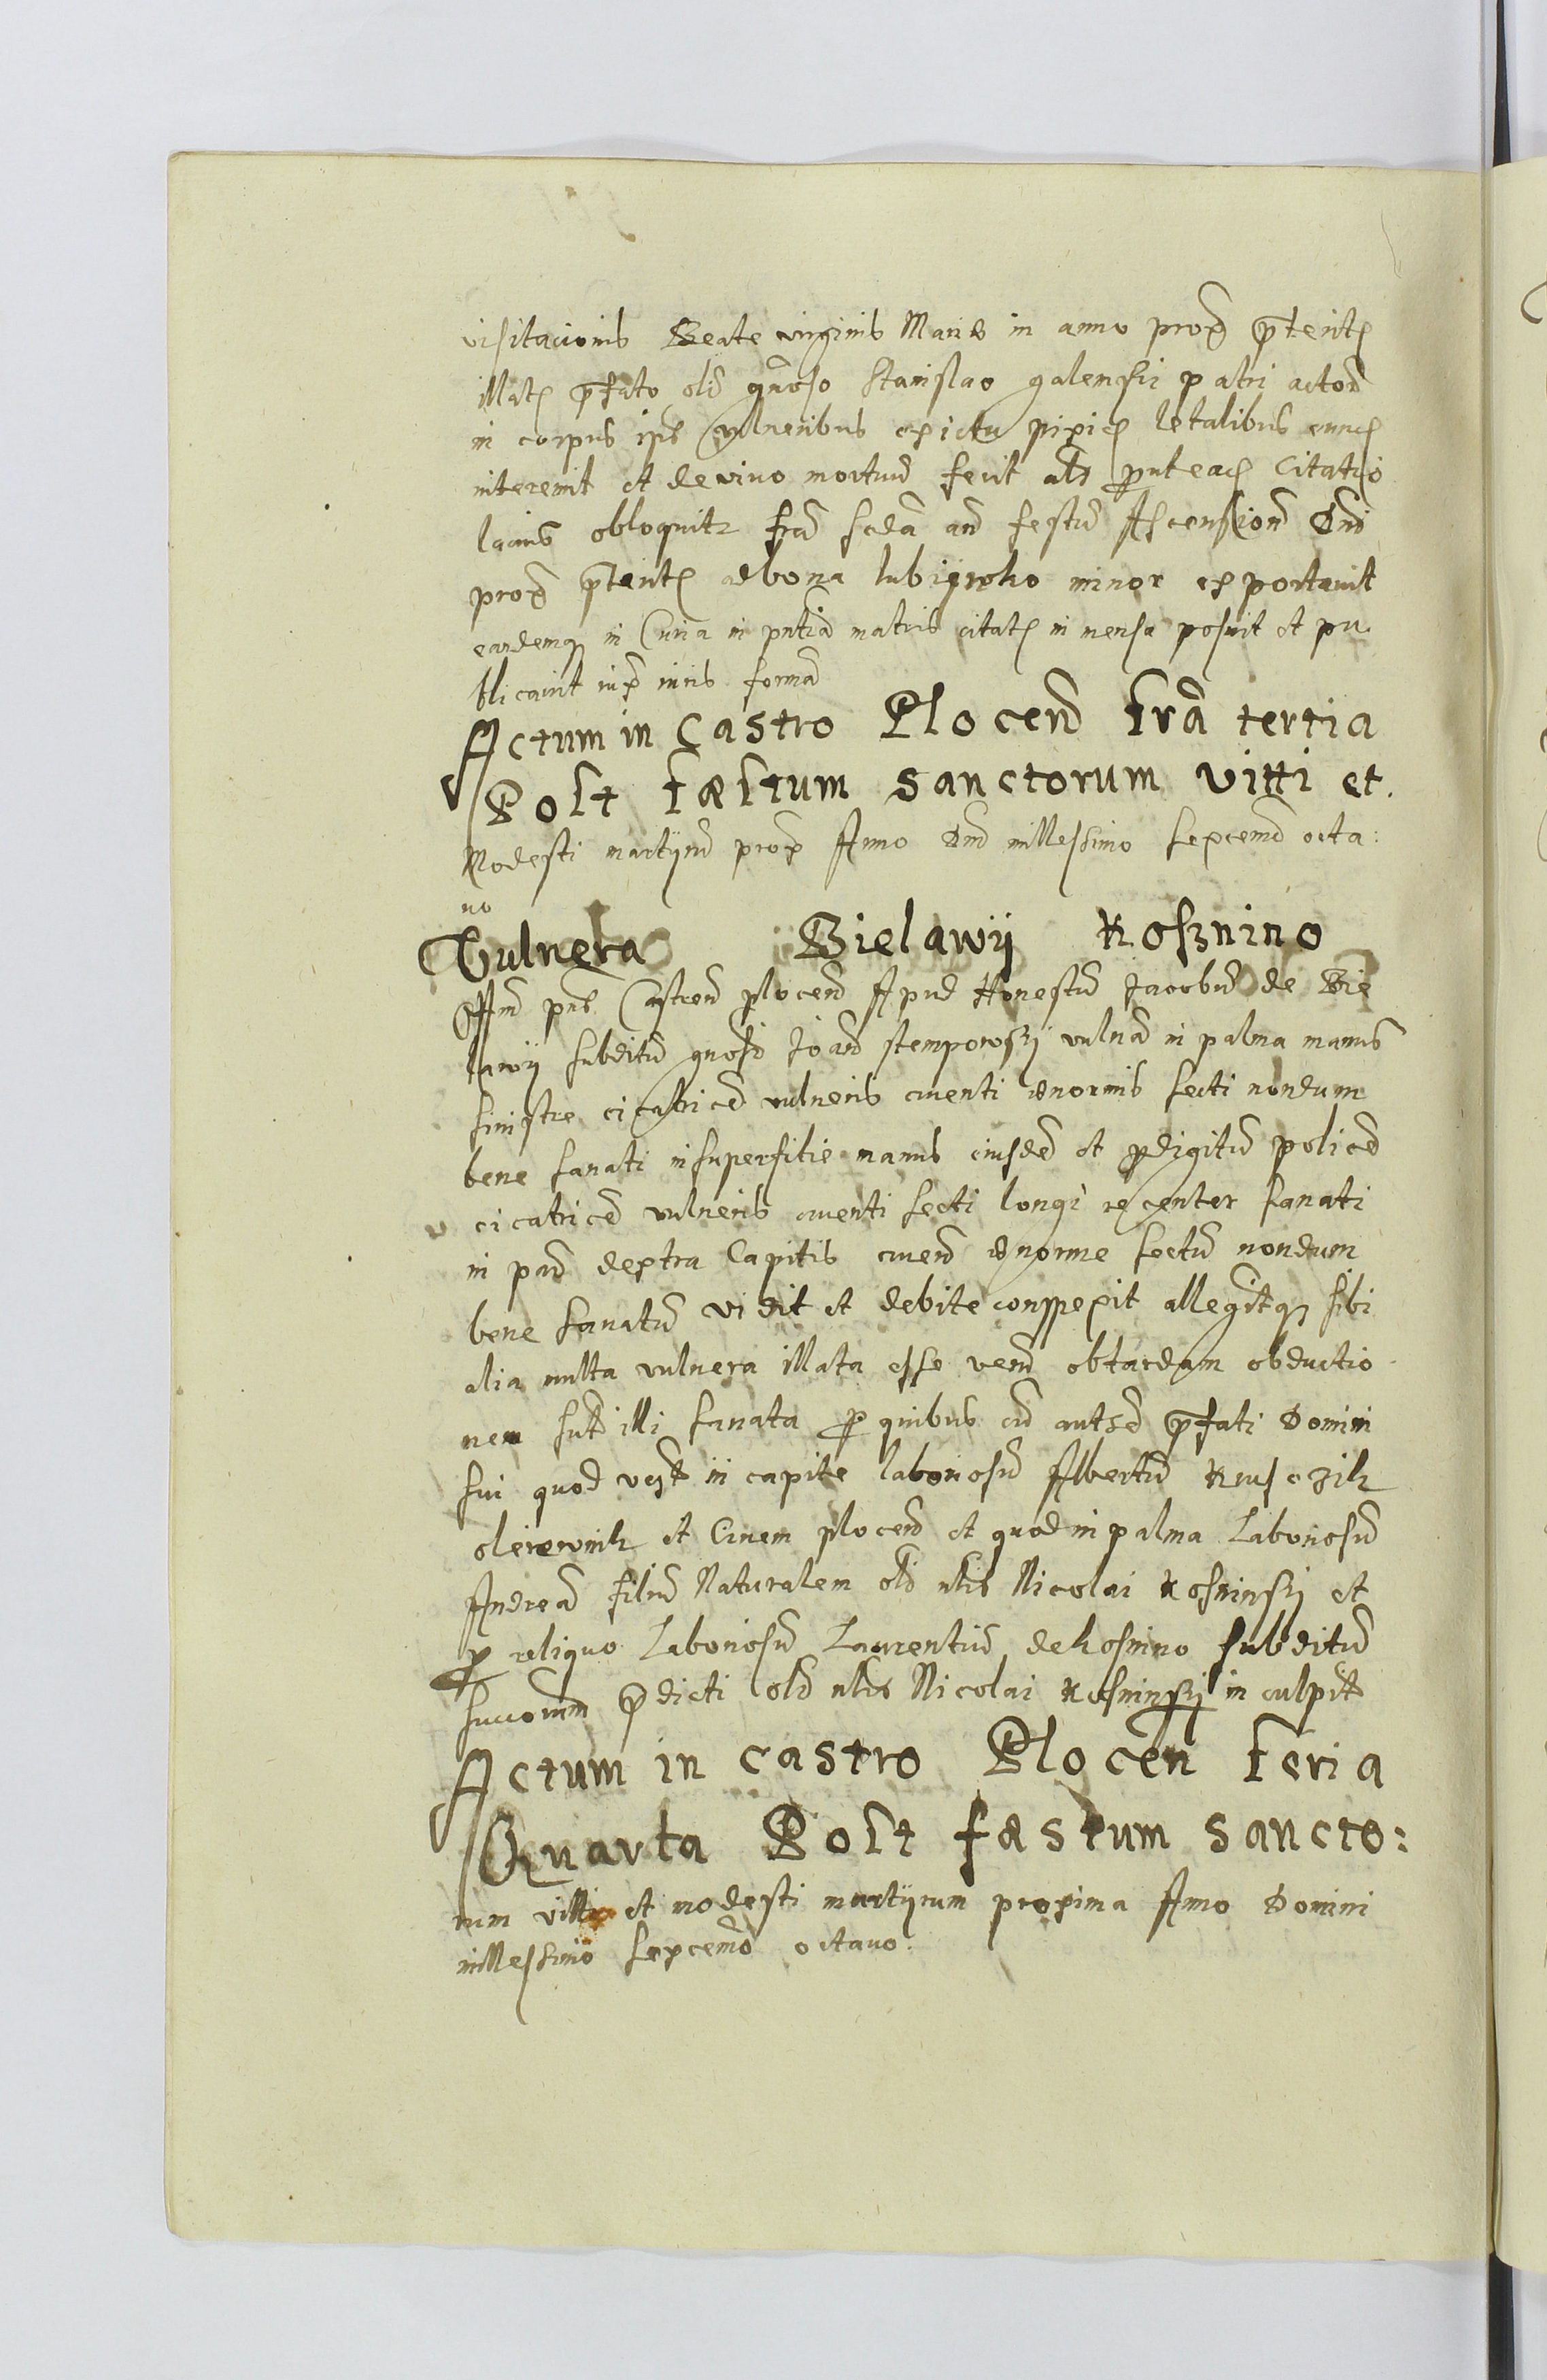 visitacionis Beate virginis Marie in anno prox p̄terit
illat p̄fato olim gn̄oso Stanislao galenski patri actor
in corpus ips vulneribus ex ictu pixid letalibus eund
interemit et de vivo mortuū fecit als prout eadem Citatio
lacius obloquitr fr̄a scd̄a an̄ festū Ascension Dn̄i
prox p̄terit ad bona lubiyncko minor exportavit
eandemq in Curia in pn̄tia matris citat in mensa posuit et pu
blicavit iux iuris formā
Actum in Castro Plocen fr̄a tertia
Post fæstum sanctorum vitti et
Modesti martÿrū prox Anno Dn̄i millessimo sexcenō octa:
uo
Vulnera Bielawÿ Kosznino
Min pn̄s Castren plocen Apud Honestū Jacobū de Bie
lawÿ subditū gnosi Joan stemposzkj vuln̄a in palma manus
sinistre cicatricē vulneris cruenti enormis secti nondum
bene sanati in superfitie manus eiusdē et p digitū policē
cicatricē vulneris cruenti secti longi recenter sanati
in par dextra Capitis cruen enorme sectū nondum
bene sanatū vidit et debite conspexit allegitq sibi
alia multa vulnera illata esse verū ob tardam obductio
nem sūt illi sanata p quibus ad autsd p̄fati Domini
sui quod vero in capite laboriosū Albertū Kruszik
olerewnik et Civem plocen et quod in palma Laboriosū
Andreā filiū Naturalem olim nlis Nicolai Kosninskj et
p reliquo Laboriosū Laurentiū de kosnino subditū
succorum p̄dicti olim nlis Nicolai Kosninskj inculpit
Actum in castro Plocen feria
Quarta Post fæstum sancto:
rum vitti et modesti martÿrum proxima Anno Domini
millessimo sexcenō octauo.